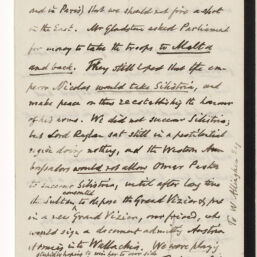 and in Paris) that we should not fire a shot
in the East. Mr Gladstone asked Parliament
for money to take the troops to Malta
and back. They still hoped that the em-
peror Nicolas would take Silistria, and
make peace on thus reestablishing the honour
of his arms. We did not succour Silistria;
but Lord Raglan sat still in a pestilential
doing nothing, and the Western Am-
bassadors would not allow Omer Pasha
to succour Silistria, until after long time
consented
the Sultan to depose the Grand Vizier & put
in a new Grand Vizier, our friend, who
would sign a document admitting Austria
armies into Wallachia. We were playing
hoping to win her to our side
To W. Allingham Esq